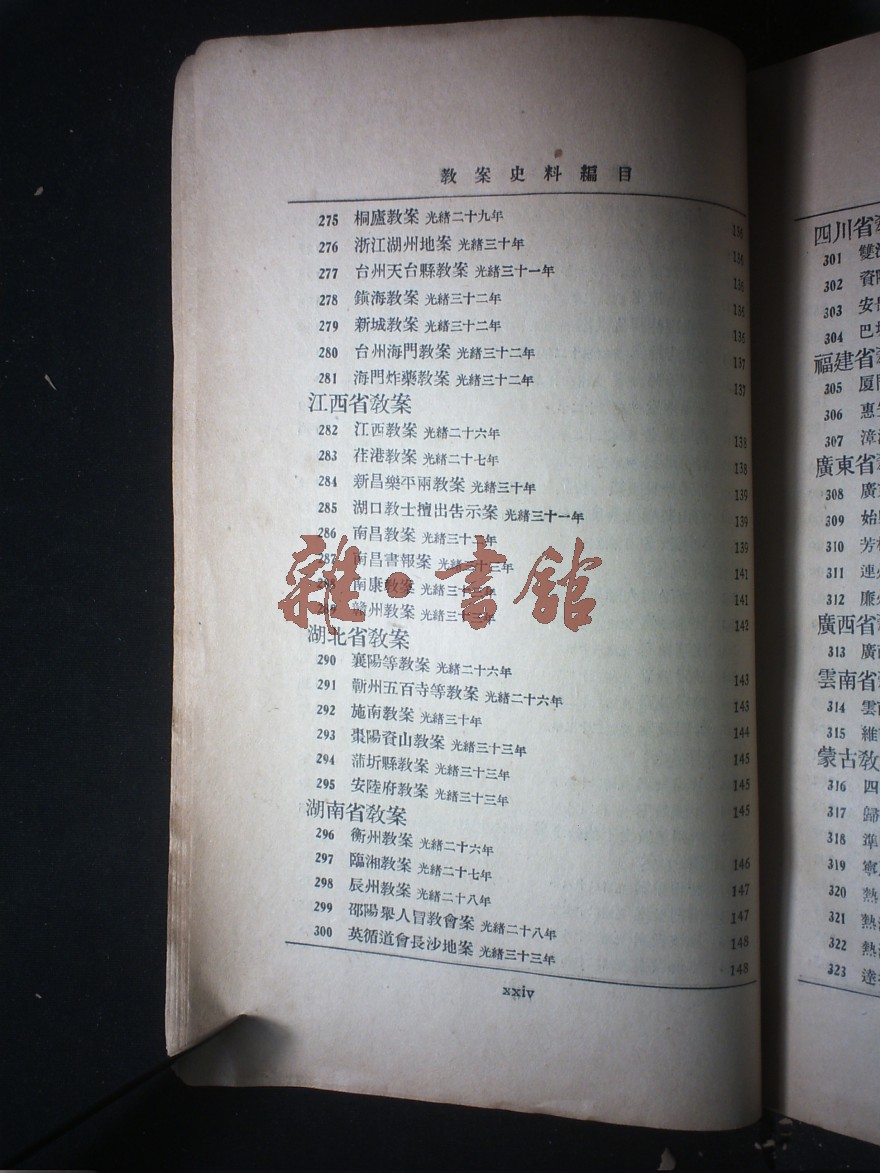 教案史料編目
275 桐廬教案 光緒二十九年 136
276 浙江湖州地案 光緒三十年 136
277 台州天台縣教案 光緒三十一年 136
278 鎮海教案 光緒三十二年 136
279 新城教案 光緒三十二年 136
280 台州海門教案 光緒三十二年 137
281 海門炸藥教案 光緒三十二年 137
江西省教案
282 江西教案 光緒二十六年 138
283 茌港教案 光緒二十七年 138
284 新昌樂平兩教案 光緒三十年 139
285 湖口教士擅出告示案 光緒三十一年 139
286 南昌教案 光緒三十二年 139
287 南昌書報案 光緒三十三年 141
288 南康教案 光緒三十三年 141
289 贛州教案 光緒三十三年 142
湖北省教案
290 襄陽等教案 光緒二十六年 143
291 蘄州五百寺等教案 光緒二十六年 143
292 施南教案 光緒三十年 144
293 棗陽資山教案 光緒三十三年 145
294 蒲圻縣教案 光緒三十三年 145
295 安陸府教案 光緒三十三年 145
湖南省教案
296 衡州教案 光緒二十六年 146
297 臨湘教案 光緒二十七年 147
298 辰州教案 光緒二十八年 147
299 邵陽舉人冒教會案 光緒二十八年 148
300 英循道會長沙地案 光緒三十三年 148
xxiv
雜·書館
四川省
301 雙
302 資
303 安
304 巴
福建省
305 厦
306 惠
307 漳
廣東省
308 廣
309 始
310 芳
311 連
312 廉
廣西省
313 廣
雲南省
314 雲
315 維
蒙古教
316 四
317 歸
318 準
319 寧
320 熱
321 熱
322 熱
323 達